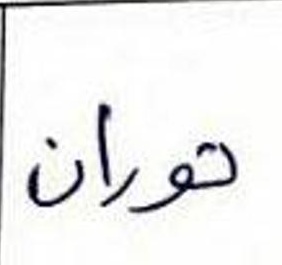 توران